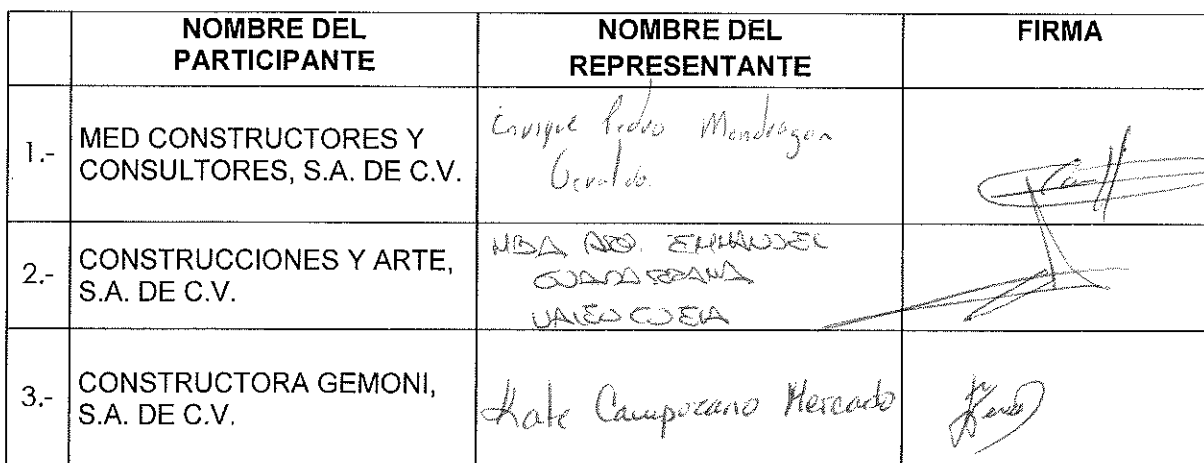 NOMBRE DEL
PARTICIPANTE
NOMBRE DEL
REPRESENTANTE
FIRMA
1.-
MED CONSTRUCTORES Y
CONSULTORES, S.A. DE C.V.
Enrique Pedro Mondragon
2.-
CONSTRUCCIONES Y ARTE,
S.A. DE C.V.
MBA ARQ. EMMANUEL
3.-
CONSTRUCTORA GEMONI,
S.A. DE C.V.
Kate Campozano Mercado